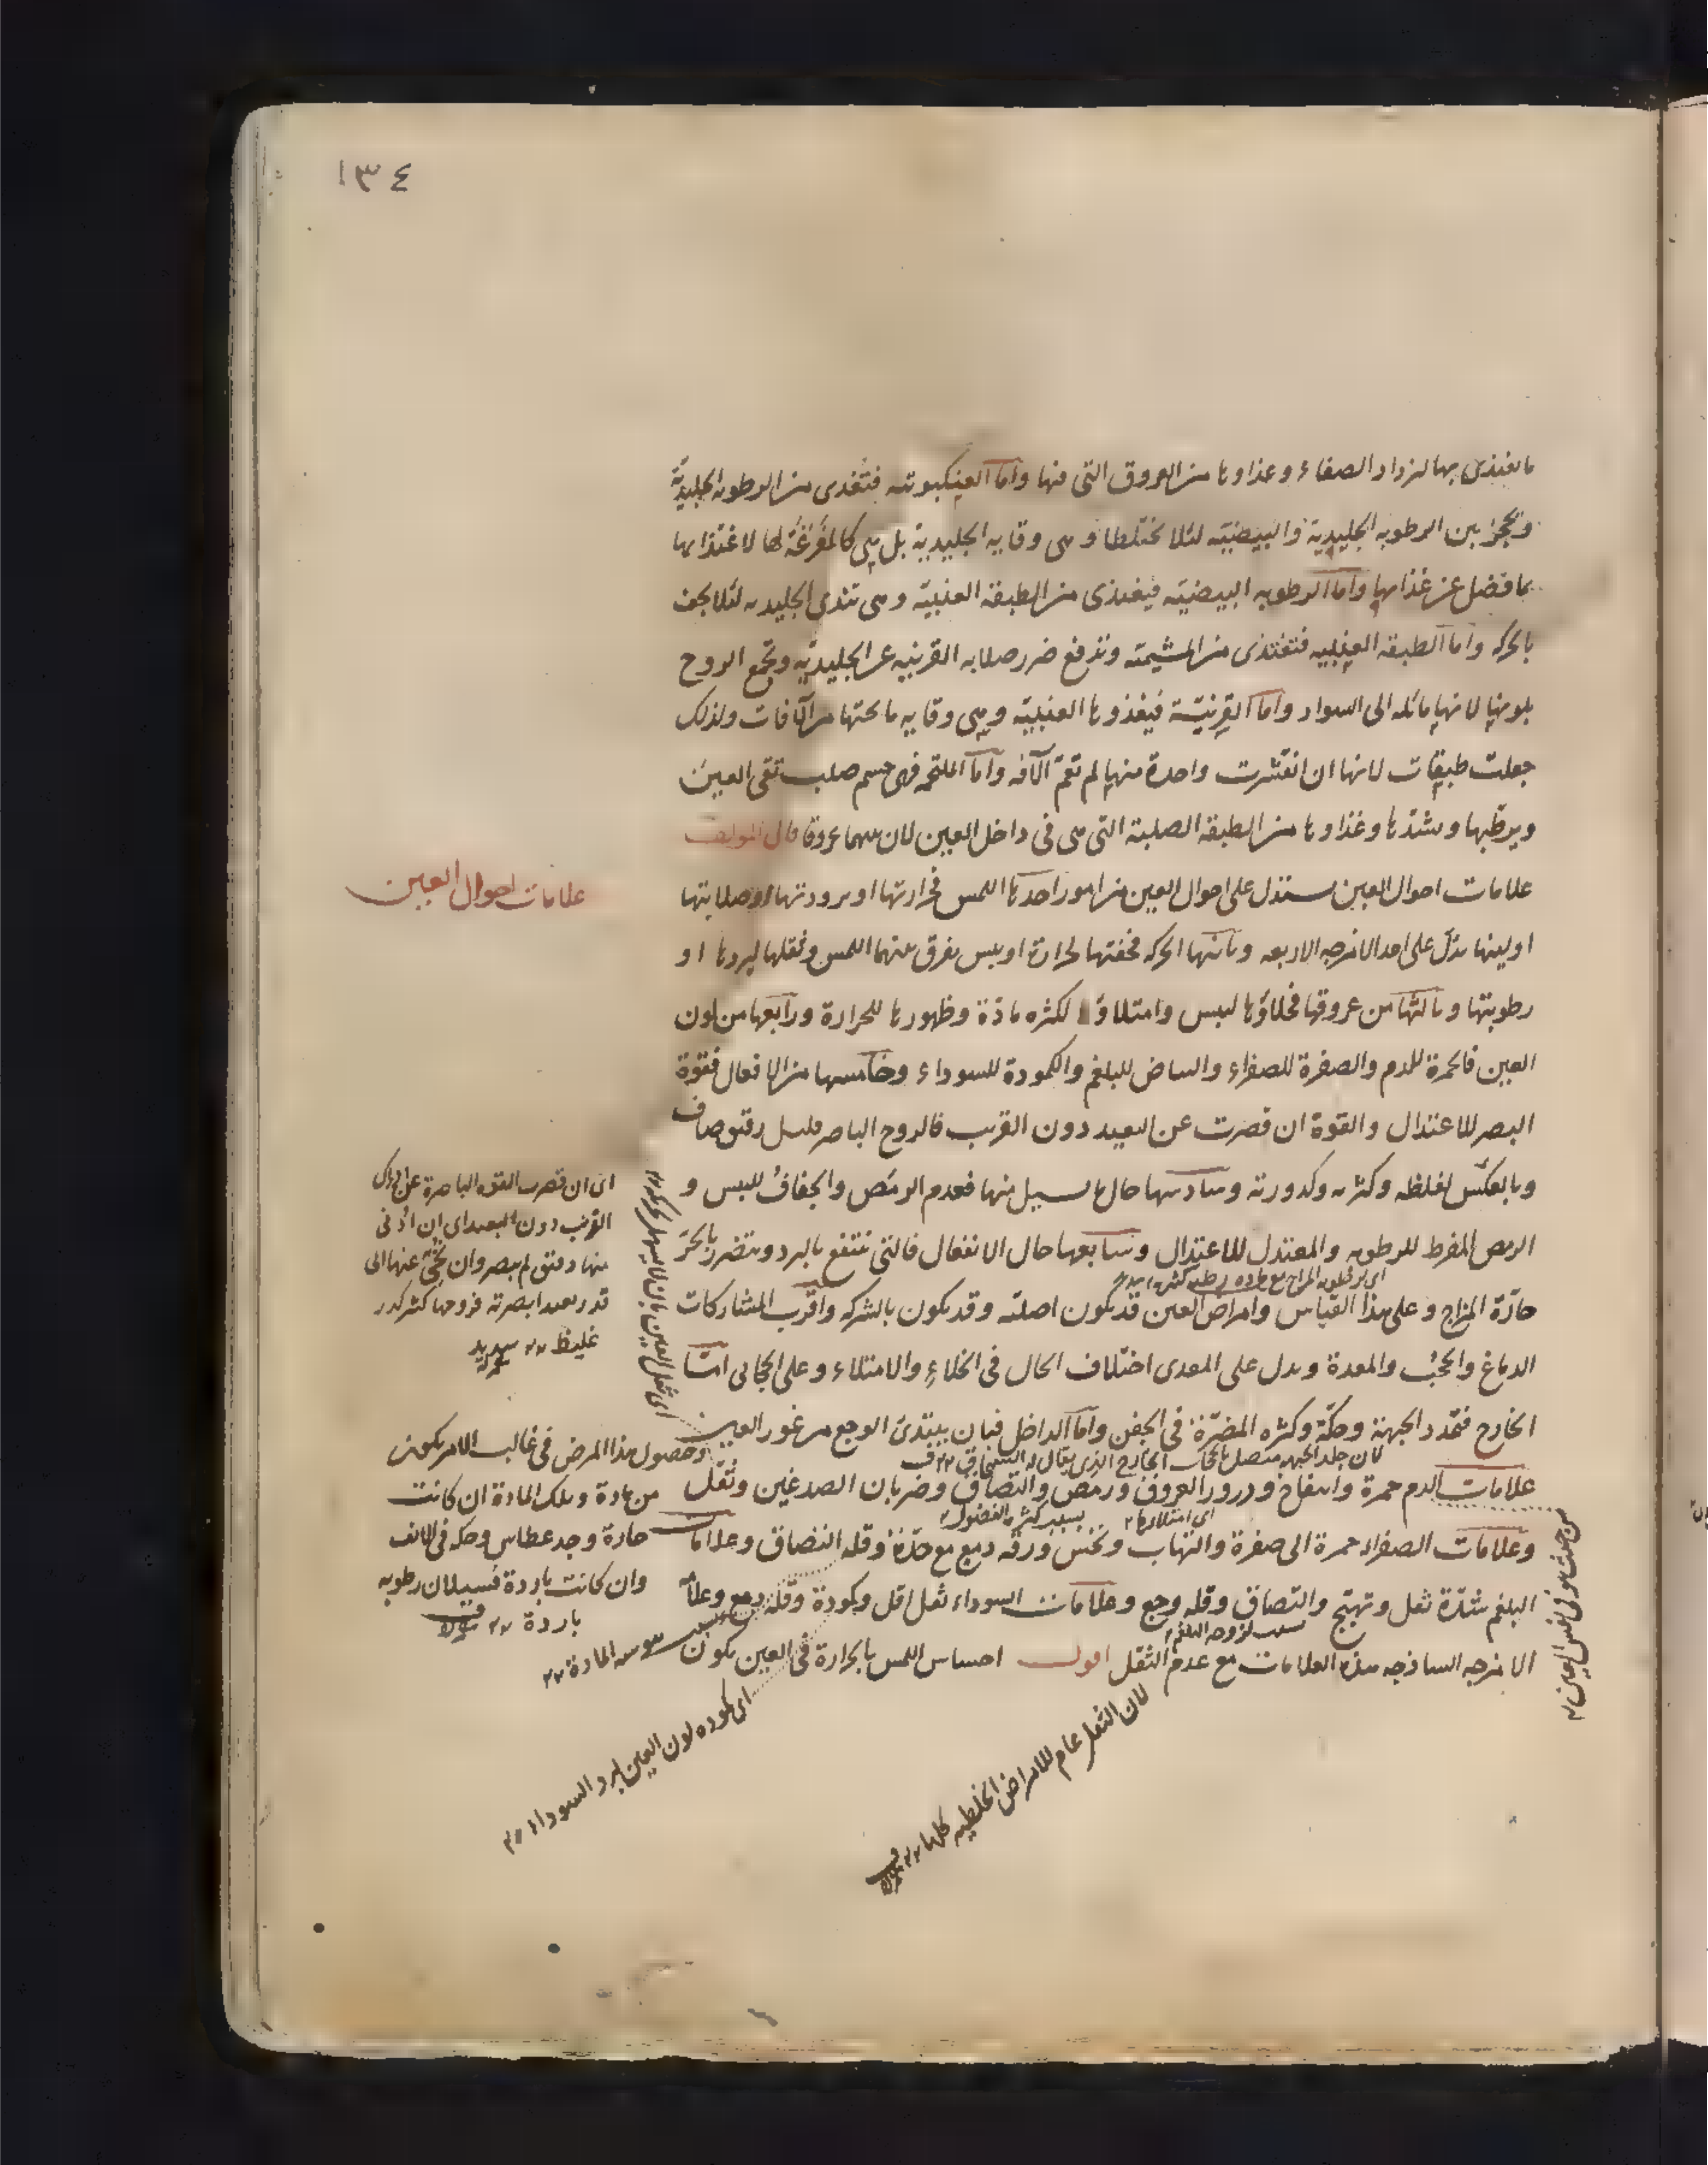 ١٣٤
ما تغتذى بها لتزداد الصفاء وغذاوها من العروق التى فيها واما العنكبوتيه فتغتدى من الرطوبه الجليديّة
وتحجز بين الرطوبه الجليدية والبيضيّه لئلا تختلطا وهى وقايه الجليدية بل هى كالمفرغة لها لاغتذايها
بما فضل عن غذايها واما الرطوبه البيضيّه فيغتذى من الطبقه العنبيّه وهى تندى الجليديه لئلا يجف
بالحركه واما الطبقه العنبيه فتغتذى من المشيميّه وتدفع ضرر صلابه القرنيه عن الجليديّه وتجمع الروح
بلونها لانها مائله الى السواد واما القرنيّة فيغذوها العنبيّه وهى وقايه ما تحتها من الآفات ولذلك
جعلت طبقات لانها ان انقشرت واحدة منها لم تعمّ الآفه واما الملتحمه فهى جسم صلب تقى العين
ويرطبها ويشدها وغذاوها من الطبقه الصلبة التى هى فى داخل العين لان بينهما عروقا قال المولف
علامات احوال العين
علامات احوال العين ستدل على احوال العين من امور احدها اللمس فحرارتها او برودتها او صلابتها
او لينها يدلّ على احد الامزجه الاربعه وثانيها الحركه فخفتها لحرارة او يبس يفرق بينهما اللمس وثقلها لبردها او
رطوبتها وثالثها من عروقها فخلاؤها ليبس وامتلاؤها لكثره مادّة وظهورها للحرارة ورابعها من لون
العين فالحمرة للدم والصفرة للصفراء والبياض للبلغم والكمودة للسوداء وخامسها من الافعال فقوة
البصر للاعتدال والقوة ان قصرت عن البعيد دون القريب فالروح الباصر قليل رقيق صاف
وبالعكس لغلظه وكثرته وكدورته وسادسها حال ما يسيل منها فعدم الرمص والجفاف لليبس و
الرمص المفرط للرطوبه والمعتدل للاعتدال وسابعها حال الانفعال فالتى تنتفع بالبرد ويتضرر بالحرّ
حارّة المزاج وعلى هذا القياس وامراض العين قد يكون اصليّه وقد يكون بالشركه واقرب المشاركات
الدماغ والحجب والمعدة ويدل على المعدى اختلاف الحال فى الخلاء والامتلاء وعلى الحجابى امّا
الخارج فتمدد الجبهة وحكّة وكثره المضرّة فى الجفن واما الداخل فبان يبتدئ الوجع من غور العين
لان جلد الجبهه متصل بالحجاب الخارج الذى يقال له السمحاق
علامات الدم حمرة وانتفاخ ودرور العروق ورمص والتصاق وضربان الصدغين وثقل
اى امتلاءها
بسبب كثره الفضول
وعلامات الصفراء حمرة الى صفرة والتهاب ونخس ورقه دمع مع حدّة وقله التصاق وعلامات
البلغم شدّة ثقل وتهيّج والتصاق وقله وجع وعلامات السوداء ثقل اقل وكمودة وقله دمع وعلامة
بسبب لزوجه البلغم
الامزجه الساذجه هذه العلامات مع عدم الثقل اقول احساس اللمس بالحرارة فى العين يكون
اى ان قصرت القوه الباصرة عن ادراك
القريب دون البعيد اى ان ادنى
منها دقيق لم يبصر وان نحّى عنها الى
قدر بعيد ابصرته فروحها كثير كدر
غليظ سديد
وحصول هذا المرض فى غالب الامر يكون
من مادة وتلك المادة ان كانت
حادة وجد عطاس وحكه فى الانف
وان كانت باردة فسيلان رطوبه
باردة
يبوسه المادة
اى كموده لون العين لبرد السوداء
لان الثقل عام للامراض الخلطيه كلها